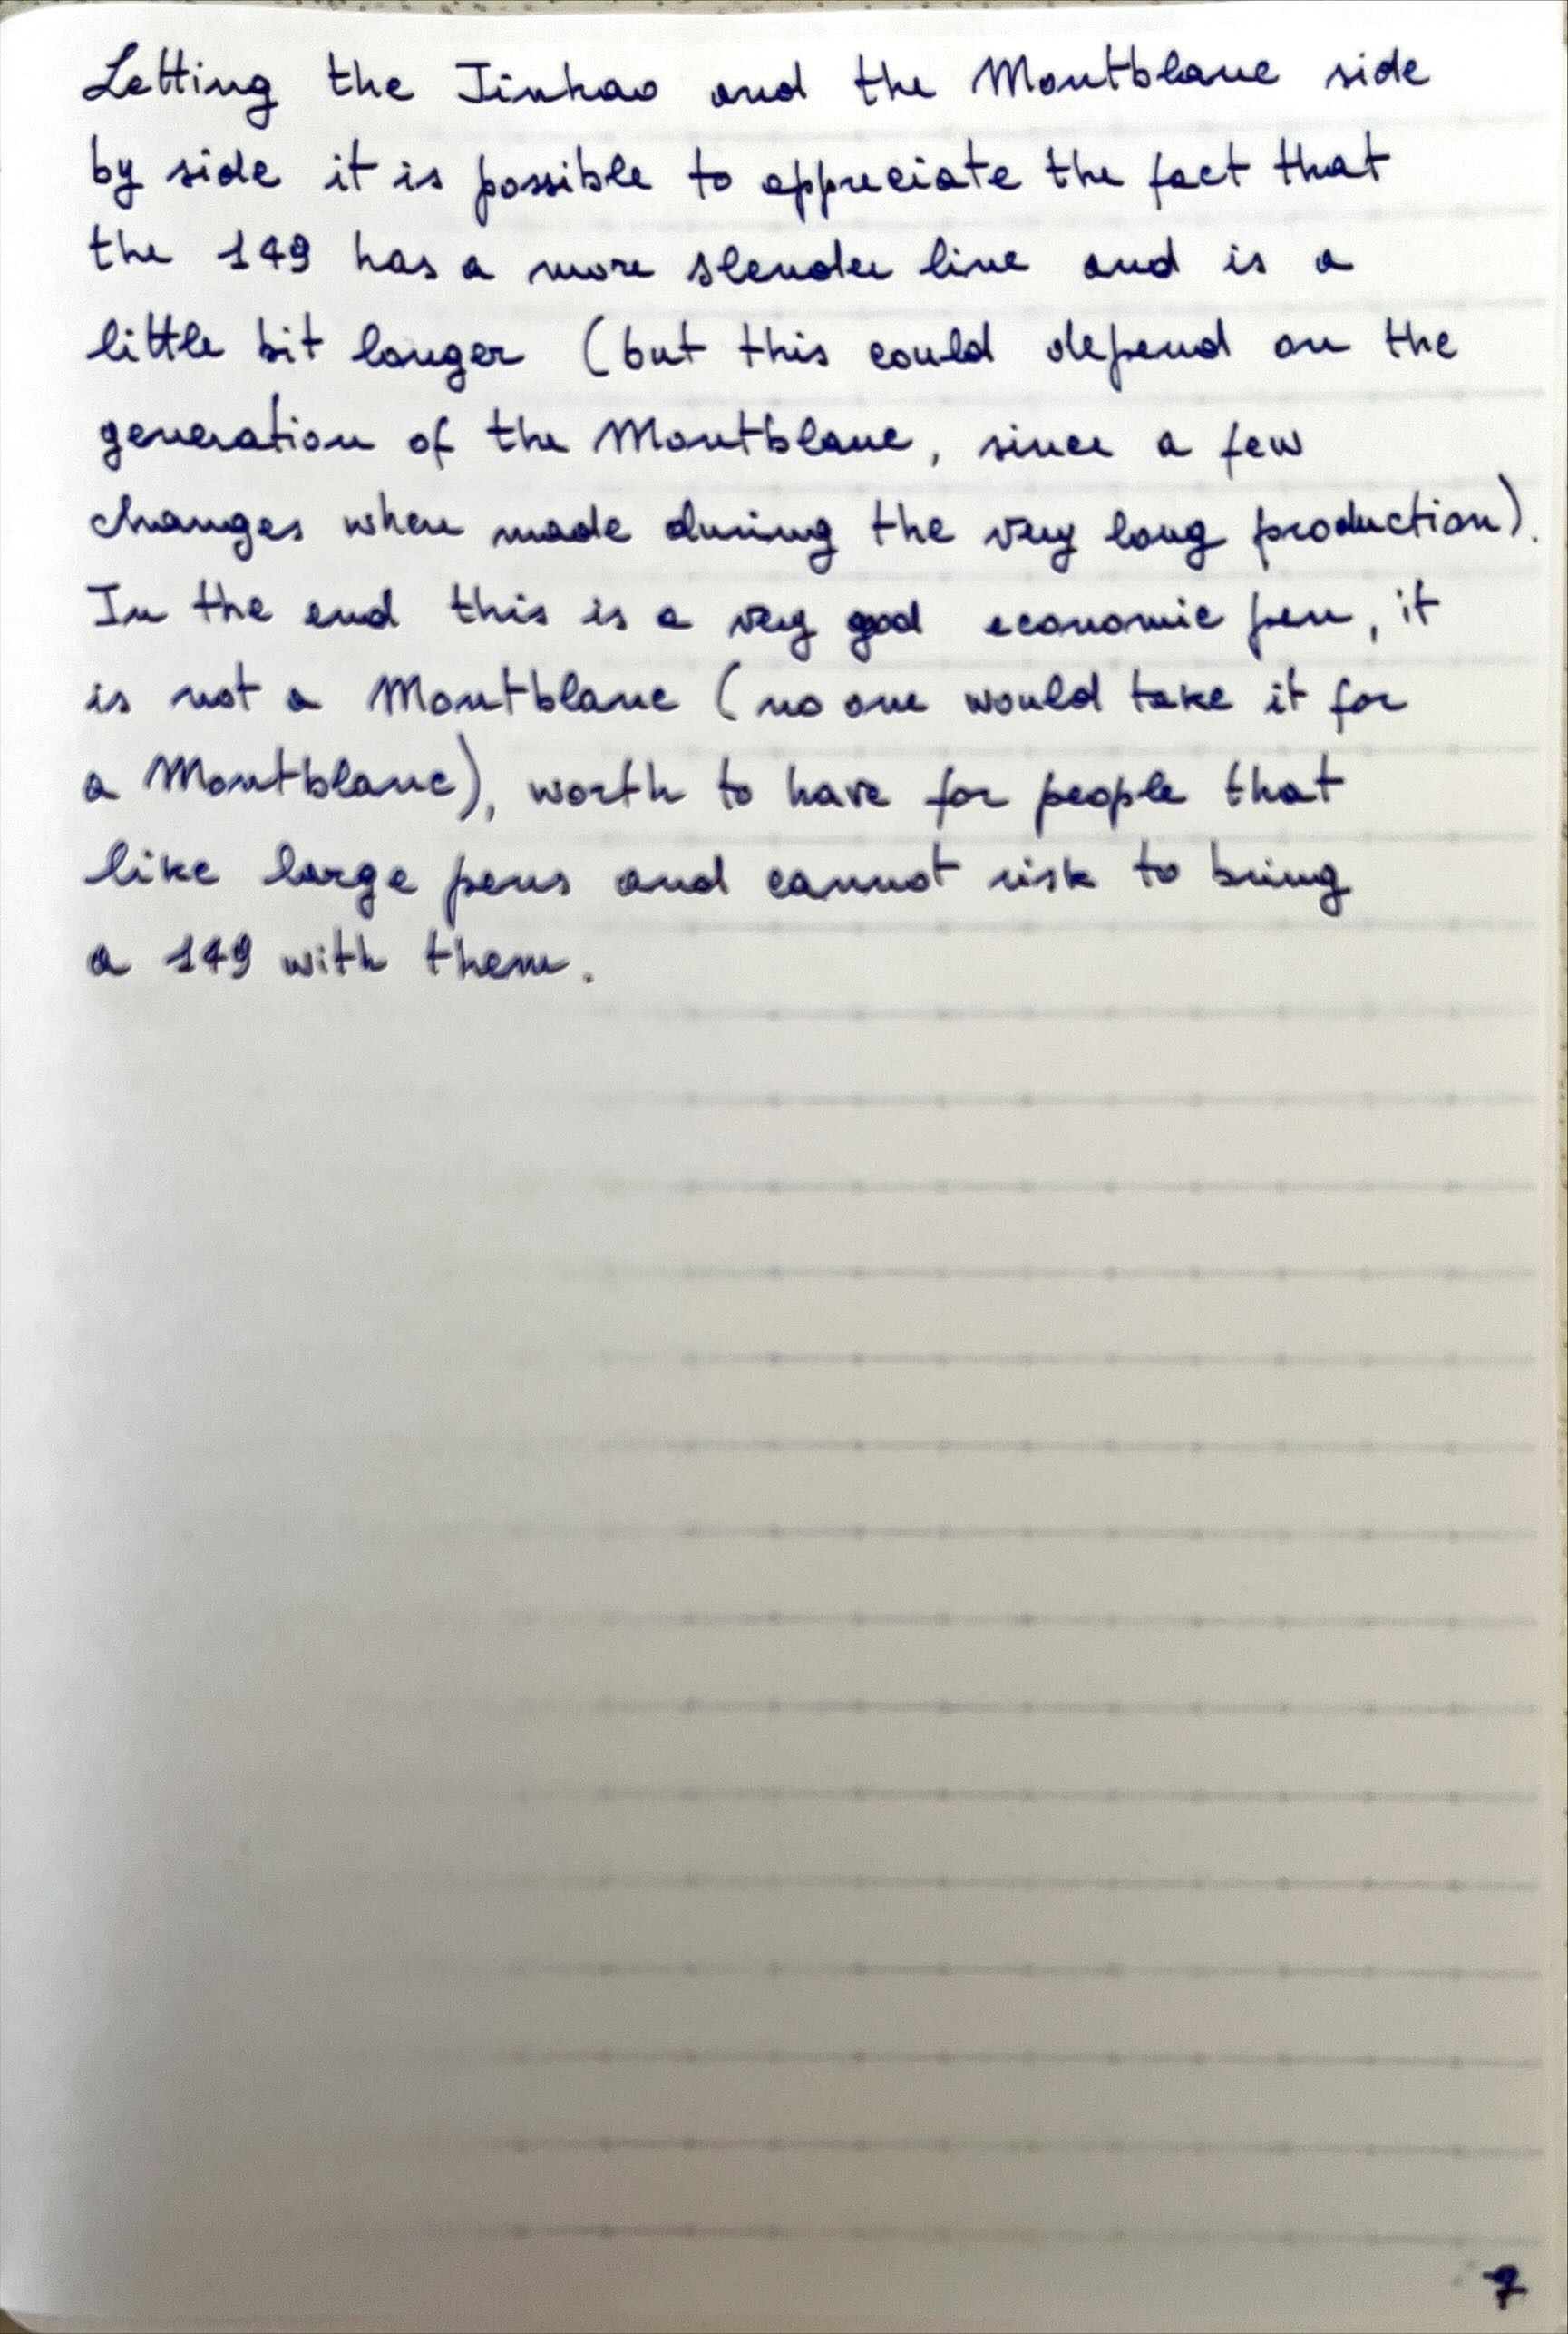 Letting the Jinhao and the Montblanc side
by side it is possible to appreciate the fact that
the 149 has a more slender line and is a
little bit longer (but this could depend on the
generation of the Montblanc, since a few
changes when made during the very long production).
In the end this is a very good economic pen, it
is not a Montblanc (no one would take it for
a Montblanc), worth to have for people that
like large pens and cannot risk to bring
a 149 with them.
7